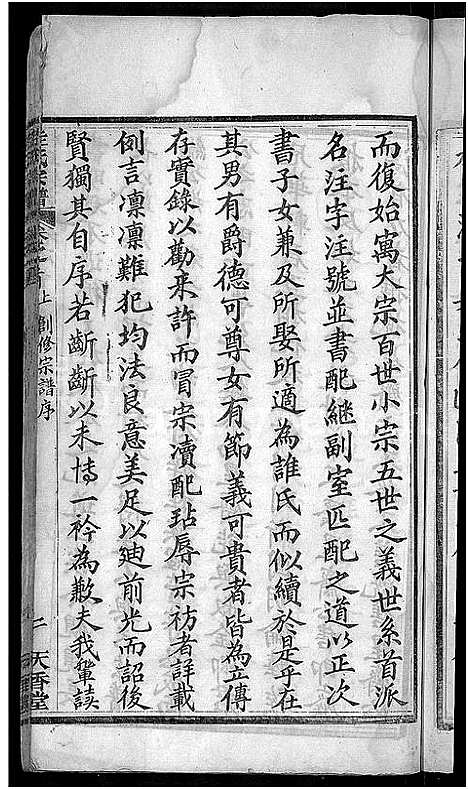 而復始寓大宗百世小宗五世之義世系首派
名注字注號並書配繼副室匹配之道以正次
書子女兼及所娶所適為誰氏而似續於是乎在
其男有爵德可尊女有節義可貴者皆為立傳
存實錄以勸來許而冒宗瀆配玷辱宗祊者詳載
例言凜凜難犯均法良意美足以廸前光而詔後
賢獨其自序若齗齗以未博一衿為歉夫我輩讀
氏宗譜
上 創修宗譜序
二 天香堂